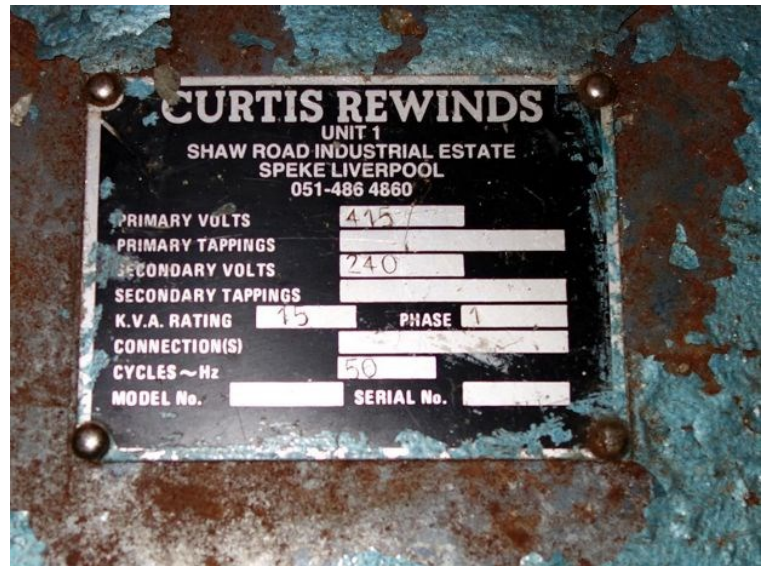 CURTIS REWINDS
UNIT 1
SHAW ROAD INDUSTRIAL ESTATE
SPEKE LIVERPOOL
051-486 4860
PRIMARY VOLTS 415
PRIMARY TAPPINGS
SECONDARY VOLTS 240
SECONDARY TAPPINGS
K.V.A. RATING 15 PHASE 1
CONNECTION(S)
CYCLES ~ Hz 50
MODEL No. SERIAL No.